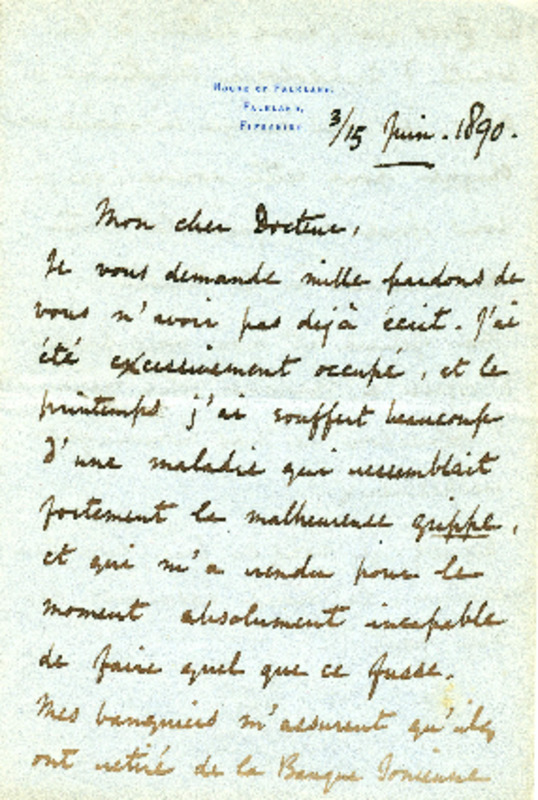 HOUSE OF FALKLAND,
FALKLAND,
FIFESHIRE
3/15 Juin. 1890.
Mon cher Docteur,
Je vous demande mille pardons de
vous n'avoir pas déjà écrit. J'ai
été excessivement occupé, et le
printemps j'ai souffert beaucoup
d'une maladie qui ressemblait
fortement la malheureuse grippe,
et qui m'a rendu pour le
moment absolument incapable
de faire quel que ce fusse.
Mes banquiers m'assurent qu'ils
ont retiré de la Banque Ionienne